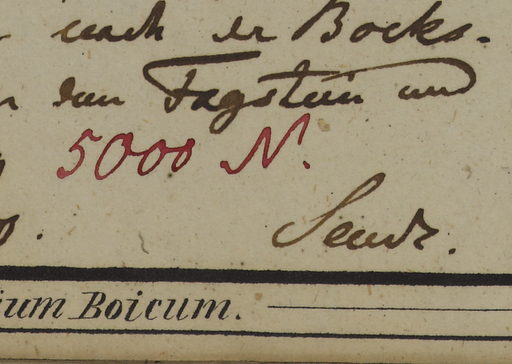 nach der Bocks-
dem Fagstein und
5000 N'.
Sendt.
ium Boicum.